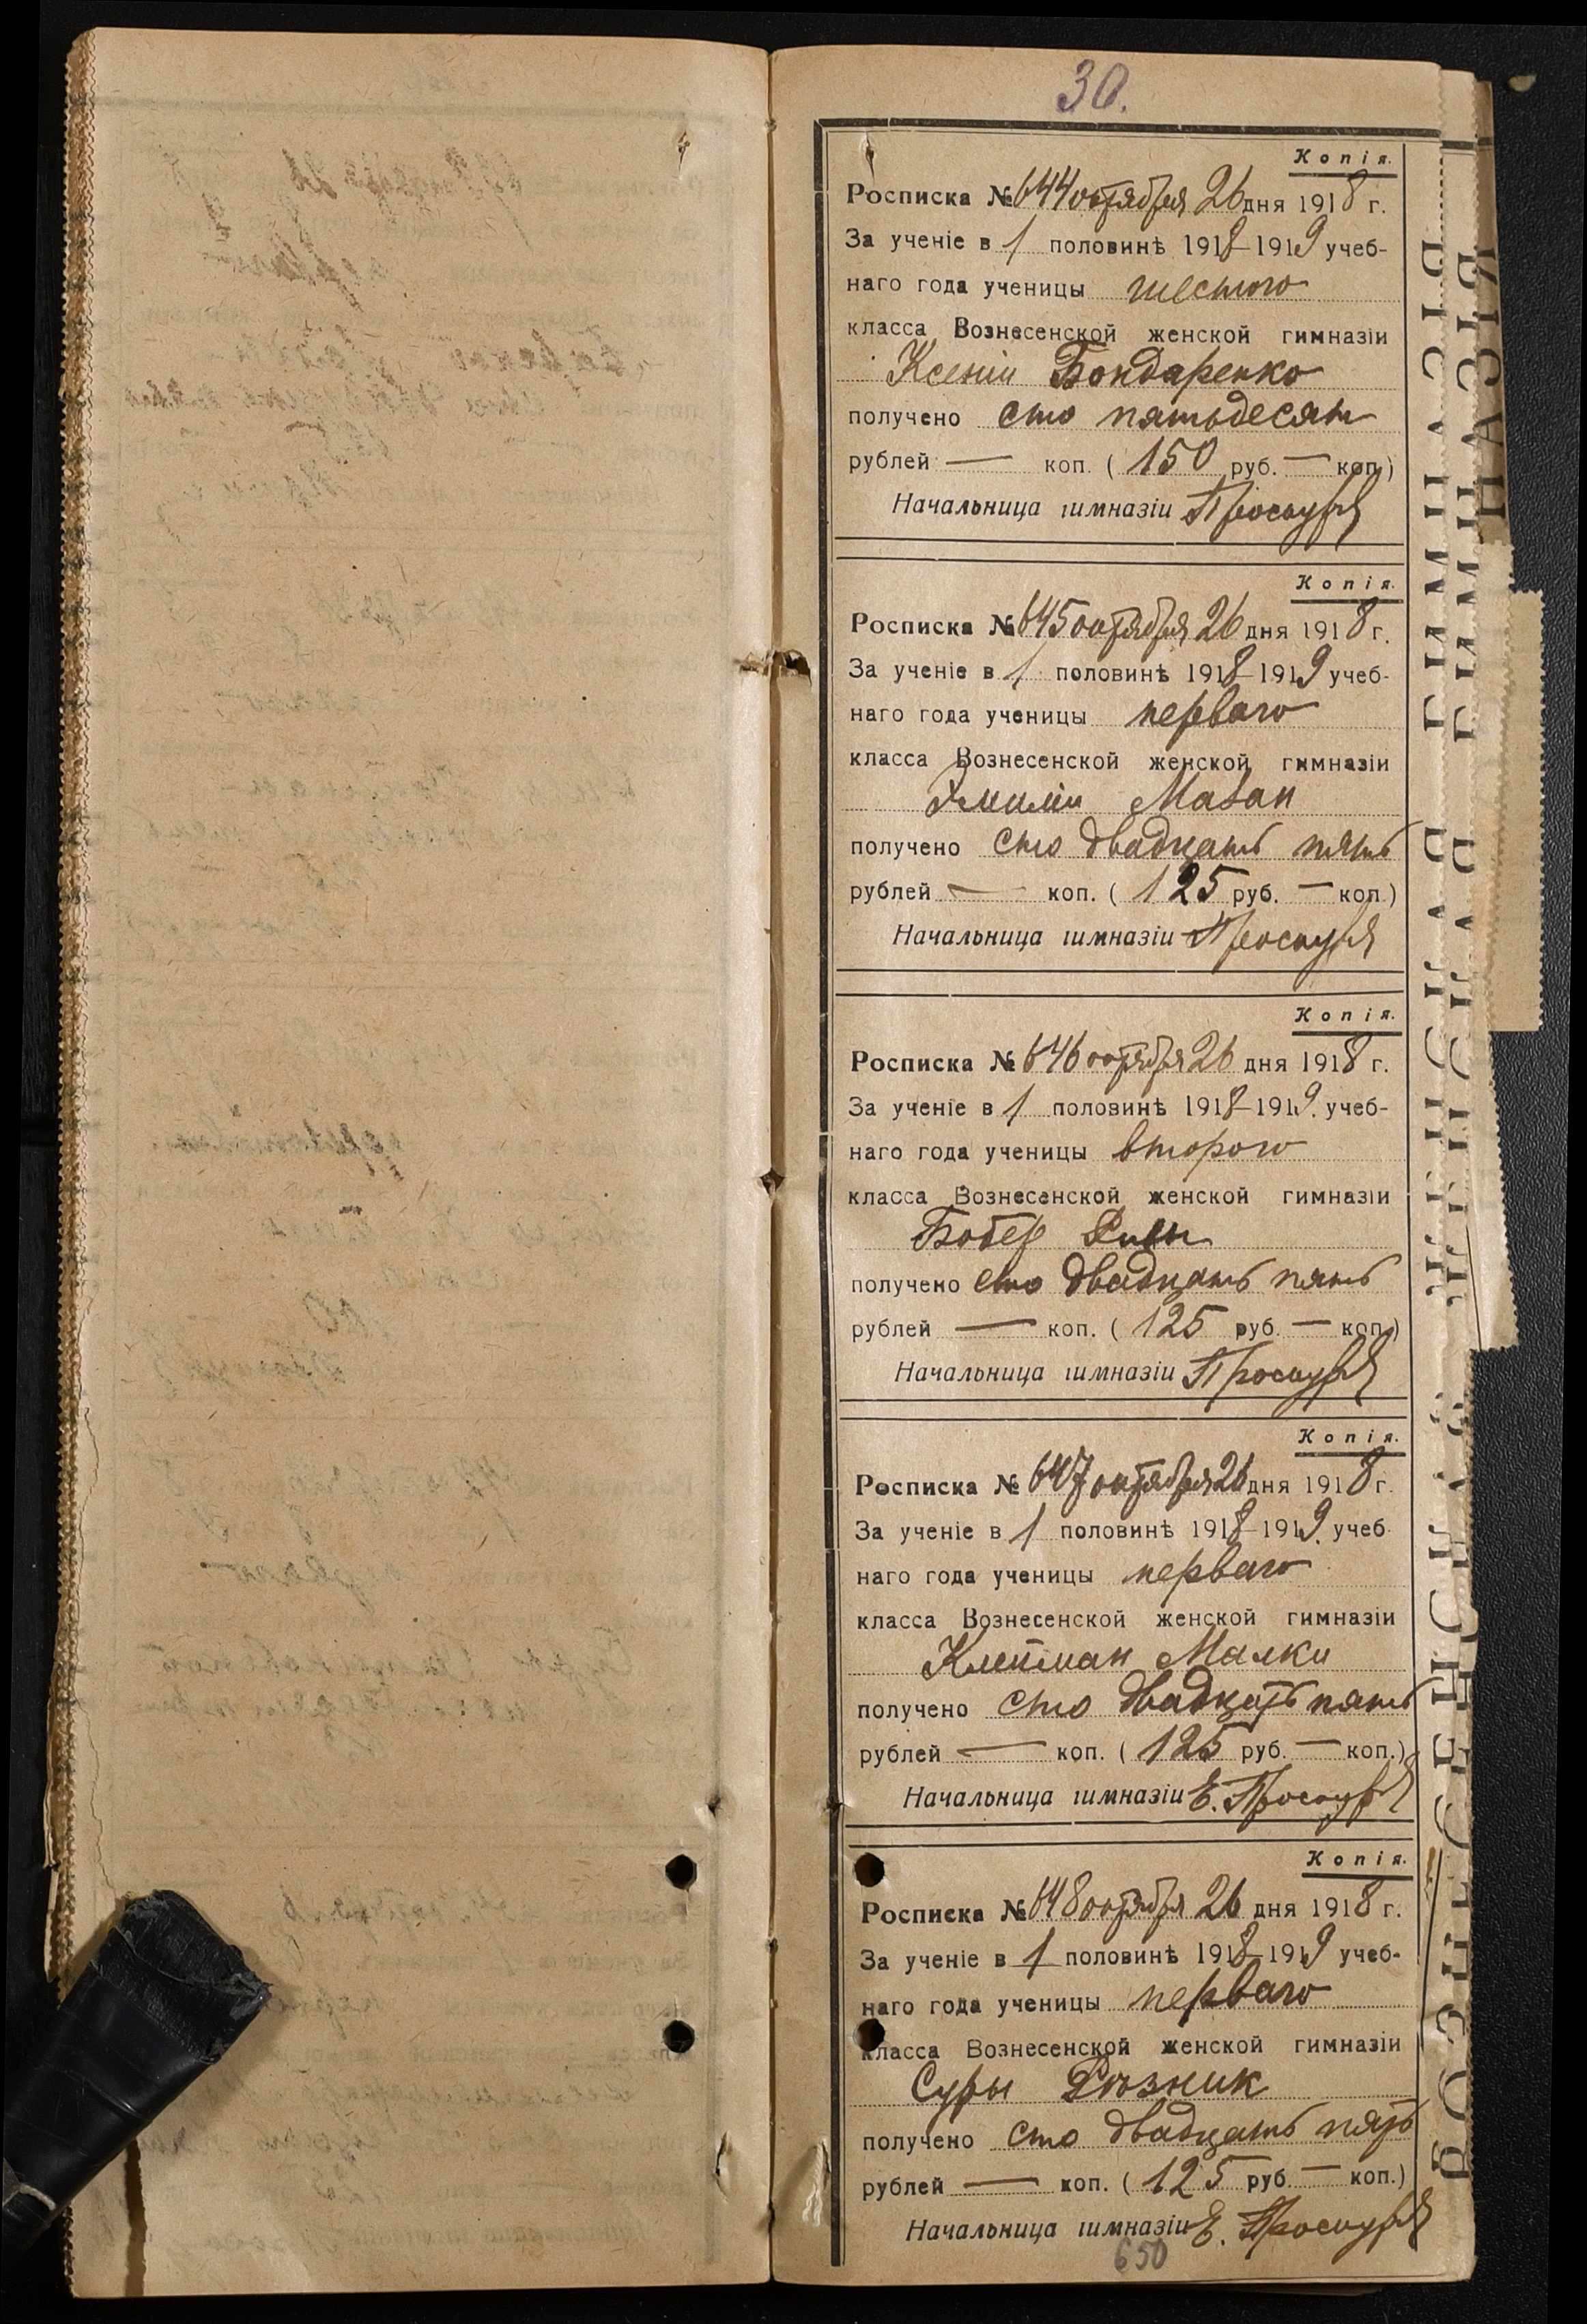 30.
Копія.
Росписка № 644 октября 26 дня 1918 г.
За ученіе в 1 половинѣ 1918–1919 учеб-
наго года ученицы шестого
класса Вознесенской женской гимназіи
Ксеніи Бондаренко
получено сто пятьдесят
рублей — коп. ( 150 руб. — коп.)
Начальница гимназіи
Копія.
Росписка № 645 октября 26 дня 1918 г.
За ученіе в 1 половинѣ 1918–1919 учеб-
наго года ученицы перваго
класса Вознесенской женской гимназіи
Эмиліи Мазан
получено сто двадцать пять
рублей — коп. ( 125 руб. — коп.)
Начальница гимназіи
Копія.
Росписка № 646 октября 26 дня 1918 г.
За ученіе в 1 половинѣ 1918–1919. учеб-
наго года ученицы второго
класса Вознесенской женской гимназіи
Бобер Ривы
получено сто двадцать пять
рублей — коп. ( 125 руб. — коп.)
Начальница гимназіи
Копія.
Росписка № 647 октября 26 дня 1918 г.
За ученіе в 1 половинѣ 1918–1919. учеб-
наго года ученицы перваго
класса Вознесенской женской гимназіи
Клейман Малки
получено сто двадцать пять
рублей — коп. ( 125 руб. — коп.)
Начальница гимназіи Е.
Копія.
Росписка № 648 октября 26 дня 1918 г.
За ученіе в 1 половинѣ 1918–1919 учеб-
наго года ученицы перваго
класса Вознесенской женской гимназіи
Суры Рѣзник
получено сто двадцать пять
рублей — коп. ( 125 руб. — коп.)
Начальница гимназіи Е.
650